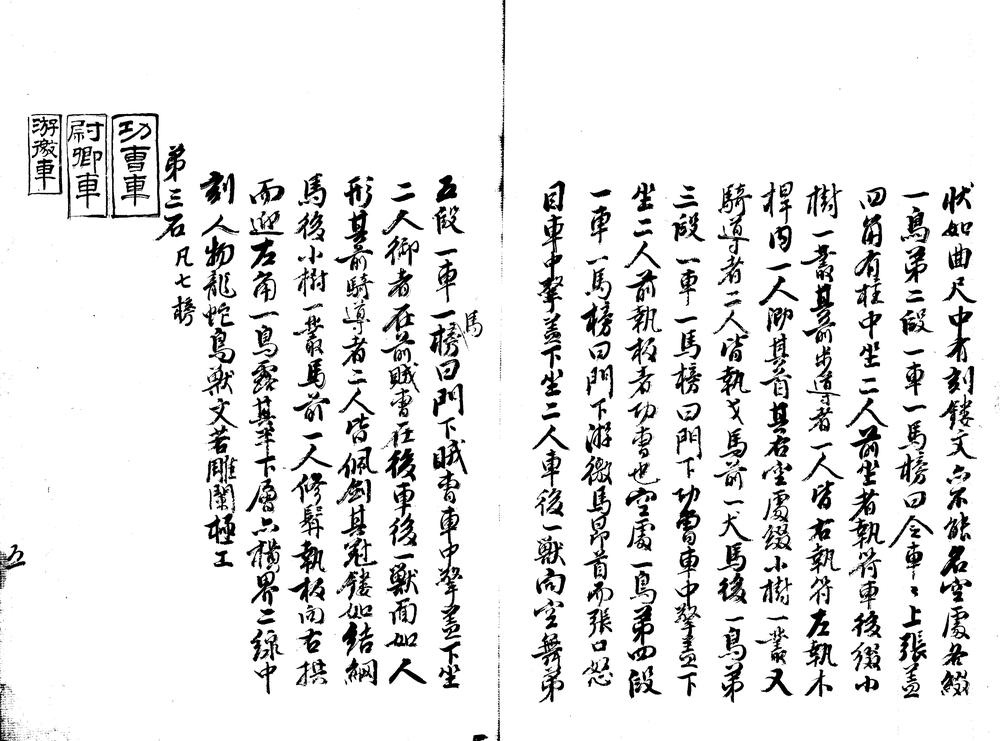 狀如曲尺中有刻鏤文亦不能名空處各綴
一鳥第二段一車一馬榜曰令車〻上張蓋
四角有柱中坐二人前坐者執符車後綴小
樹一叢其前步導者一人皆右執符左執木
桿內一人泐其首其右空處綴小樹一叢又
騎導者二人皆執戈馬前一犬馬後一鳥第
三段一車一馬榜曰門下功曹車中擎蓋下
坐二人前執板者功曹也空處一鳥第四段
一車一馬榜曰門下游徼馬昂首而張口怒
目車中擎蓋下坐二人車後一獸向空舞第
五段一車一馬榜曰門下賊曹車中擎蓋下坐
二人御者在前賊曹在後車後一獸面如人
形其前騎導者二人皆佩劍其冠鏤如結網
馬後小樹一叢馬前一人修髯執板向右拱
而迎左角一鳥露其半下層亦橫界二線中
刻人物龍蛇鳥獸文若雕闌極工
第三石 凡七榜
功曹車
尉卿車
游徼車
五